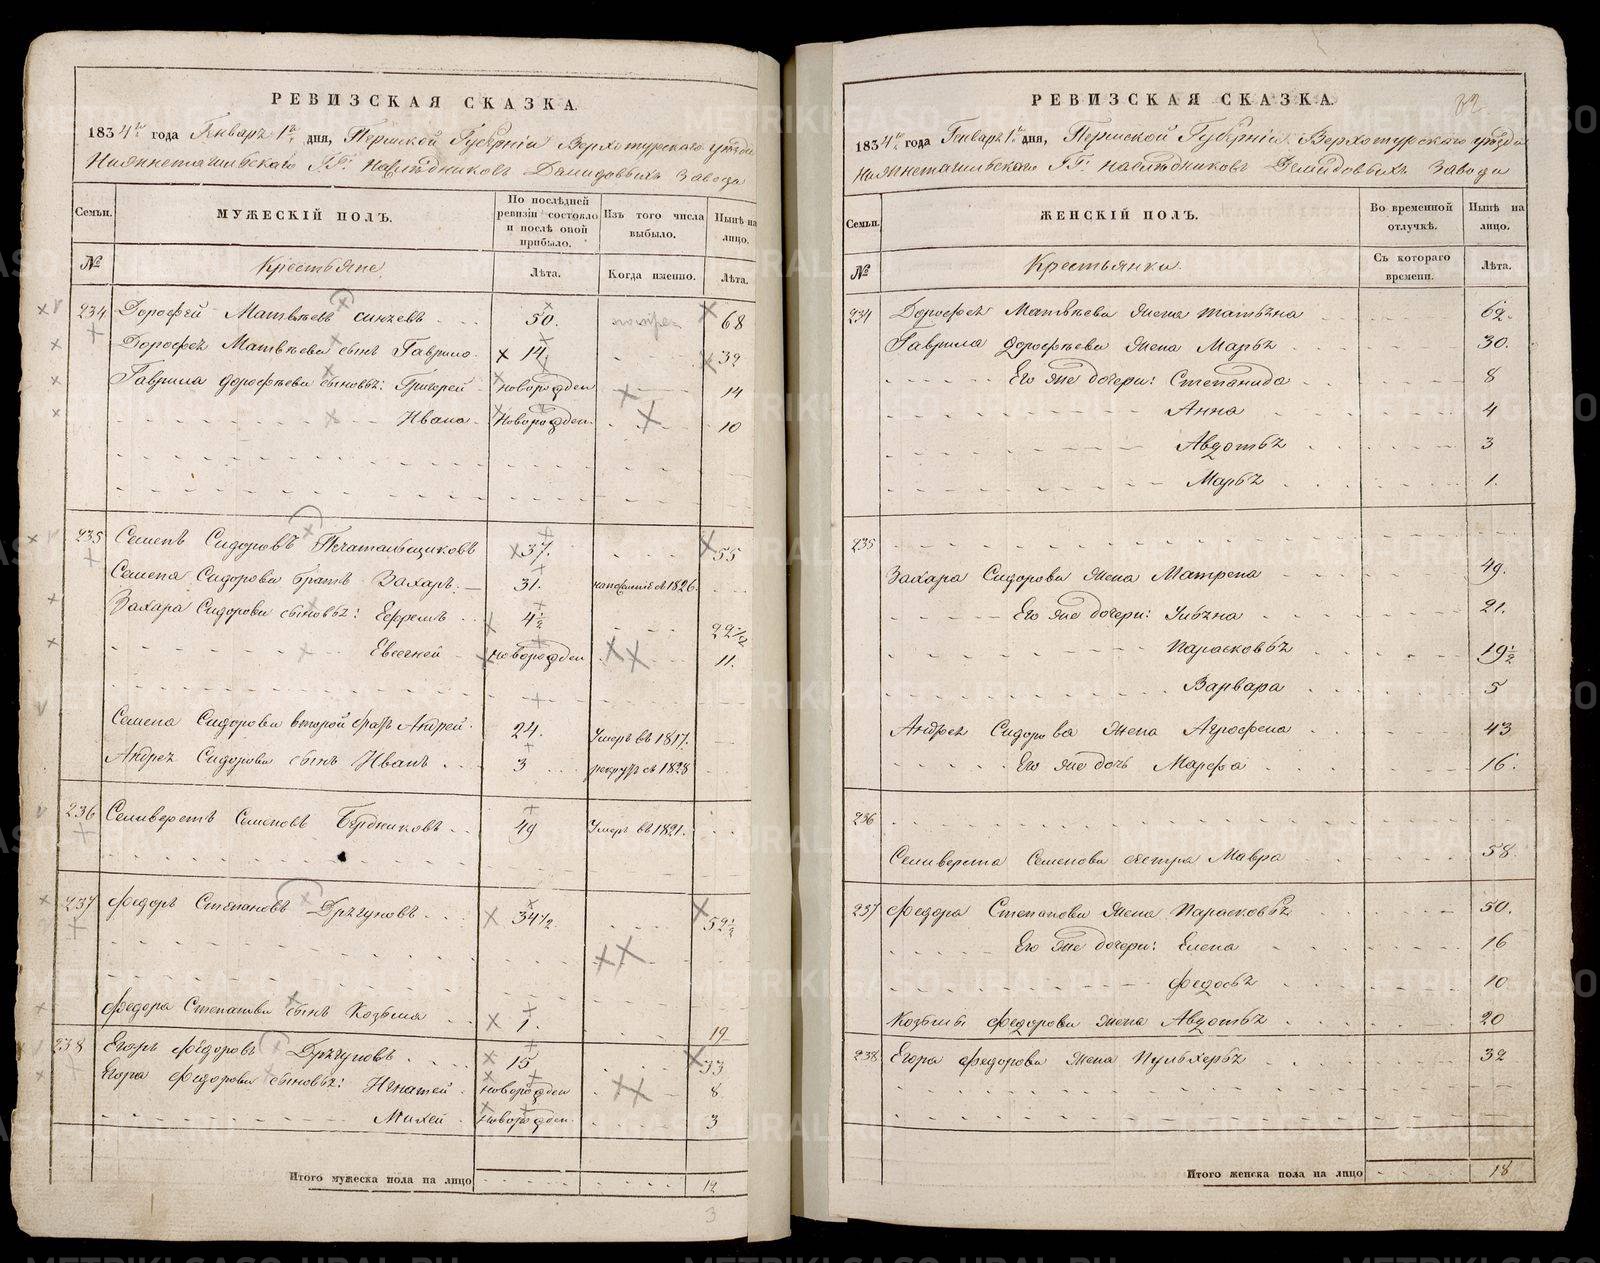 РЕВИЗСКАЯ СКАЗКА.
1834го года Генваря 1го дня, Пермской Губерніи Верхотурскаго уѣзда
Нижнетагильскаго ГГ. Наслѣдниковъ Демидовыхъ Завода
Семьи. МУЖЕСКІЙ ПОЛЪ. По послѣдней ревизіи состояло и послѣ оной прибыло. Изъ того числа выбыло. Нынѣ на лицо.
№ Крестьяне Лѣта. Когда именно. Лѣта.
234 Дорофей Матвѣевъ 50. 68
Дорофея Матвѣева сынъ Гаврило 14 32
Гаврила Дорофѣева сыновья: Григорей новорожден 14
Ивана Новорожден. 10
235 Семенъ Сидоровъ Печатальщиковъ 37. 55
Семена Сидорова братъ Захаръ 31. 1826.
Захара Сидорова сыновья: Ефремъ 4½ 22½
Евсегней новорожден 11.
Семена Сидорова второй братъ Андрей. 24. Умеръ въ 1817.
Андрея Сидорова сынъ Иванъ 3 рекрутъ въ 1828
236 Селиверстъ Семеновъ Бердниковъ 49 Умеръ въ 1821.
237 Федоръ Степановъ Дрягуновъ 34½ 52½
Федора Степанова сынъ Козьма 1. 19
238 Егоръ Федоровъ Дрягуновъ 15 33
Егора Федорова сыновья: Игнатей новорожден 8
Михей новорожден. 3
Итого мужеска пола на лицо 12
3
РЕВИЗСКАЯ СКАЗКА.
1834го года Генваря 1го дня, Пермской Губерніи Верхотурскаго уѣзда
Нижнетагильскаго ГГ. Наслѣдниковъ Демидовыхъ Завода
Семьи. ЖЕНСКІЙ ПОЛЪ. Во временной отлучкѣ. Нынѣ на лицо.
№ Крестьянки. Съ котораго времени. Лѣта.
234 Дорофея Матвѣева жена Татьяна 62.
Гаврила Дорофѣева жена Марья 30.
Его же дочери: Степанида 8
Анна 4
Авдотья 3
Марья 1.
235
Захара Сидорова жена Матрена 49.
Его же дочери: Ульяна 21.
Парасковья 19½
Варвара 5
Андрея Сидорова жена Агрофена 43
Его же дочь Марфа 16.
236
Селиверста Семенова сестра Мавра 58.
237 Федора Степанова жена Парасковья 50.
Его же дочери: Елена 16
Федосья 10
Козьмы Федорова жена Авдотья 20
238 Егора Федорова жена Пульхерья 32
Итого женска пола на лицо 18
METRIKI.GASO-URAL.RU